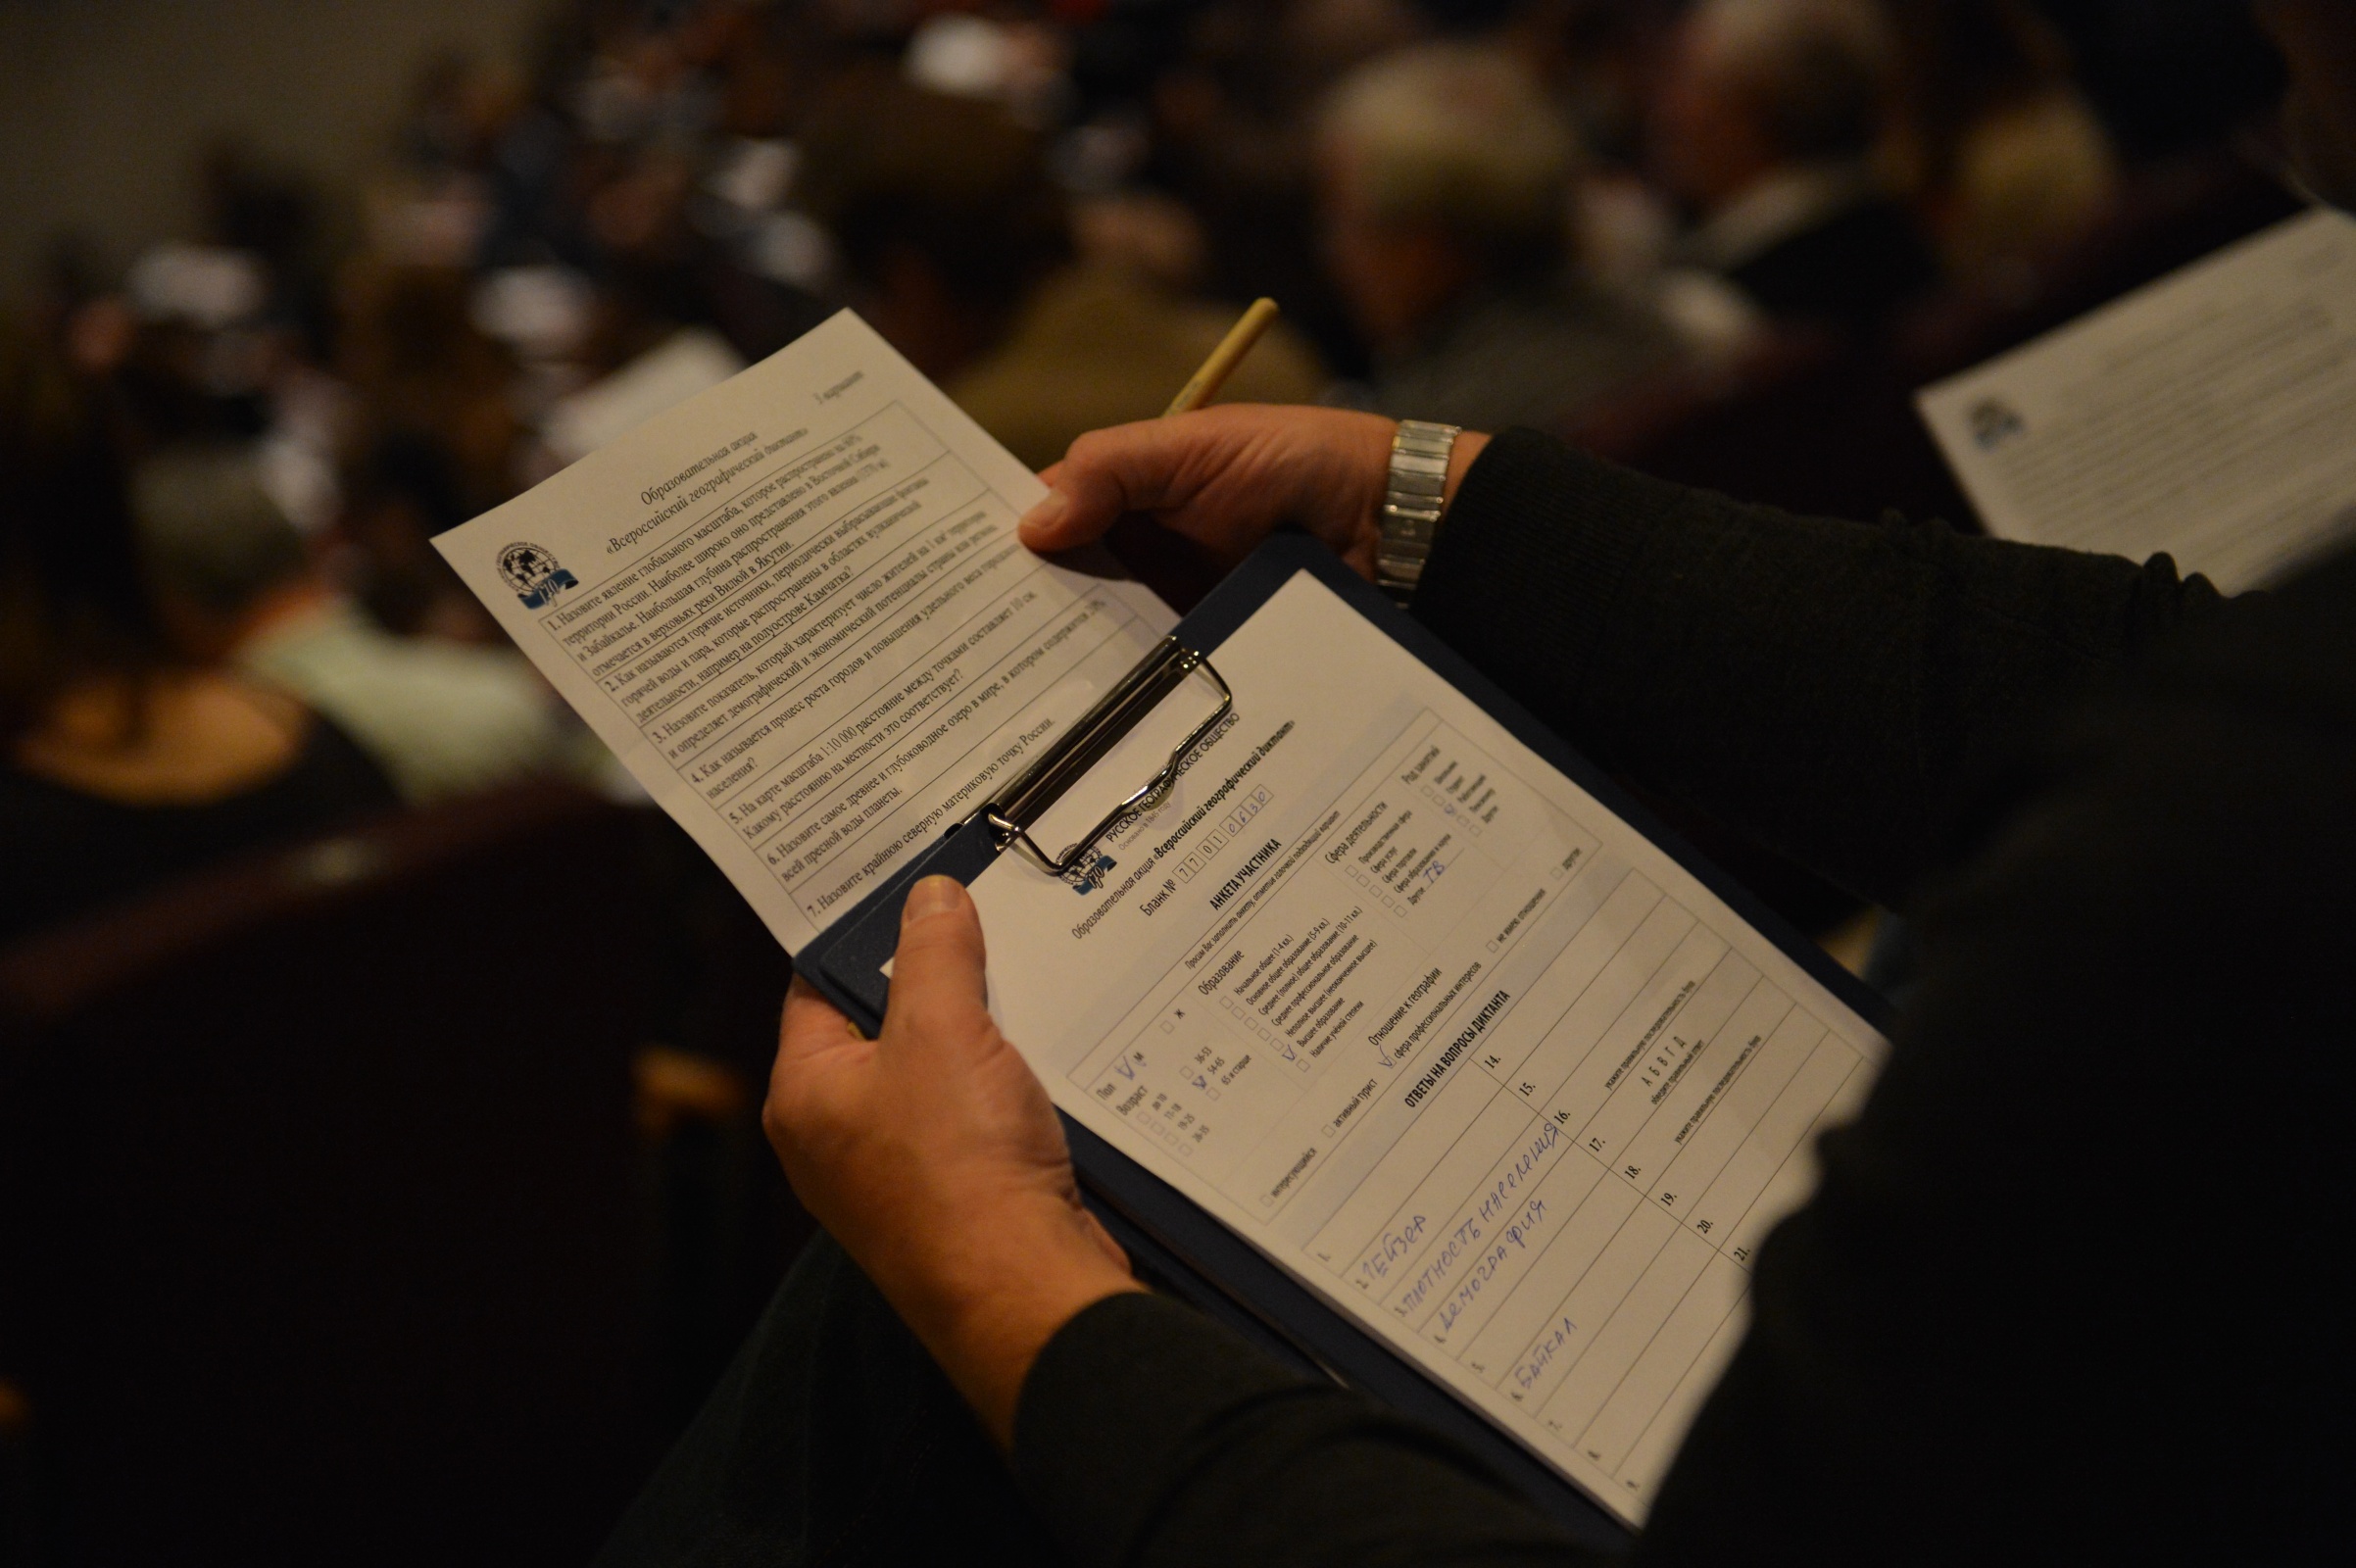 1 вариант
Образовательная акция
«Всероссийский географический диктант»
1. Назовите явление глобального масштаба, которое распространено на 60%
территории России. Наиболее широко оно представлено в Восточной Сибири
и Забайкалье. Наибольшая глубина распространения этого явления (1370 м)
отмечается в верховьях реки Вилюй в Якутии.
2. Как называются горячие источники, периодически выбрасывающие фонтаны
горячей воды и пара, которые распространены в областях вулканической
деятельности, например на полуострове Камчатка?
3. Назовите показатель, который характеризует число жителей на 1 км² территории
и определяет демографический и экономический потенциалы страны или региона.
4. Как называется процесс роста городов и повышения удельного веса городского
населения?
5. На карте масштаба 1:10 000 расстояние между точками составляет 10 см.
Какому расстоянию на местности это соответствует?
6. Назовите самое древнее и глубоководное озеро в мире, в котором содержится 20%
всей пресной воды планеты.
7. Назовите крайнюю северную материковую точку России.
РУССКОЕ ГЕОГРАФИЧЕСКОЕ ОБЩЕСТВО
Образовательная акция «Всероссийский географический диктант»
Бланк № 7701 0630
АНКЕТА УЧАСТНИКА
Пол
М
Ж
Возраст
36-53
54-65
65 и старше
Образование
Начальное общее (1-4 кл.)
Основное общее образование (5-9 кл.)
Среднее (полное) общее образование (10-11 кл.)
Среднее профессиональное образование
Неполное высшее (неоконченное высшее)
Высшее образование
Наличие учёной степени
Сфера деятельности
Производственная сфера
Сфера услуг
Сфера торговли
Сфера образования и науки
Другое ТВ
Род занятий
Отношение к географии
интересующийся
активный турист
сфера профессиональных интересов
не имею отношения
другое
ОТВЕТЫ НА ВОПРОСЫ ДИКТАНТА
1.
2. ГЕЙЗЕР
3. ПЛОТНОСТЬ НАСЕЛЕНИЯ
4. ДЕМОГРАФИЯ
5.
6. БАЙКАЛ
7.
8.
9.
14.
15.
16.
17.
18.
19.
20.
21.
укажите правильную последовательность букв
А Б В Г Д
обведите правильный ответ
укажите правильную последовательность букв